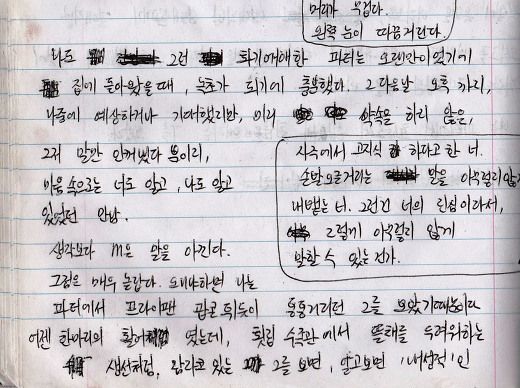 머리가 무겁다.
왼쪽 눈이 따끔거린다.
나도 그런 화기애애한 파티는 오랜만이었기에
집에 돌아왔을 때, 녹초가 되기에 충분했다. 그 다음날 오후 까지,
나중에 예상하거나 기대했지만, 미리 약속을 하지 않은,
그저 말만 안꺼냈다 뿐이지,
마음속으로는 너도 알고, 나도 알고
있었던 만남.
사족에서 고지식 하다고 한 너.
손발 오므러지는 말을 아무렇지 않게
내뱉는 너. 그런건 너의 진심이라서,
그렇게 아무렇지 않게
말할 수 있는건가.
생각보다 M은 말을 아낀다.
그점은 매우 놀랍다. 왜냐하면 나는
파티에서 프라이팬 팝콘 튀듯이 통통거리던 그를 보았기때문이다
어젠 한마리의 활어 였는데, 횟집 수족관에서 뜰채를 두려워하는
생선처럼, 있는 그를 보면, 알고보면 '내성적'인